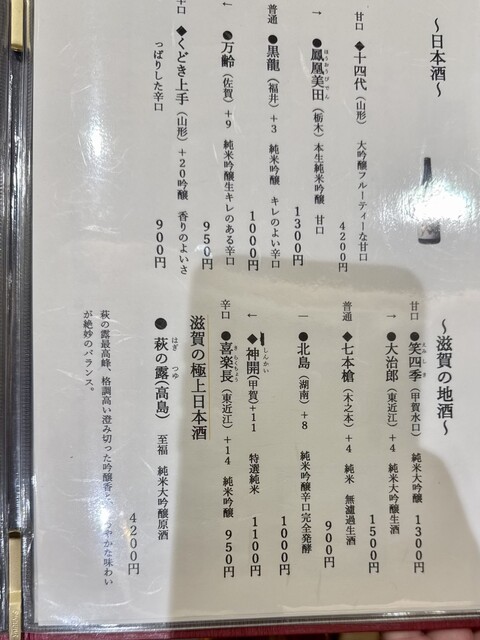 ～日本酒～
甘口 ◆十四代（山形） 大吟醸フルーティーな甘口 4200円
→ ●鳳凰美田（栃木）本生純米吟醸 甘口 1300円
ほうおうびでん
普通 ●黒龍（福井）＋3 純米吟醸 キレのよい辛口 1000円
← ●万齢（佐賀）＋9 純米吟醸生キレのある辛口 950円
辛口 ◆くどき上手（山形）＋20吟醸 香りのよいさ
っぱりした辛口 900円
～滋賀の地酒～
甘口 ●笑四季（甲賀水口） 純米大吟醸 1300円
えみしき
→ ●大治郎（東近江）＋4 純米大吟醸生酒 1500円
普通 ◆七本槍（木之本）＋4 純米 無濾過生酒 900円
｜ ●北島（湖南）＋8 純米吟醸辛口完全発酵 1000円
← ◆神開（甲賀）＋11 特選純米 1100円
しんかい
辛口 ●喜楽長（東近江）＋14 純米吟醸 950円
きらくちょう
滋賀の極上日本酒
●萩の露（高島） 至福 純米大吟醸原酒 4200円
はぎ つゆ
萩の露最高峰、格調高い澄み切った吟醸香と やかな味わい
が絶妙のバランス。